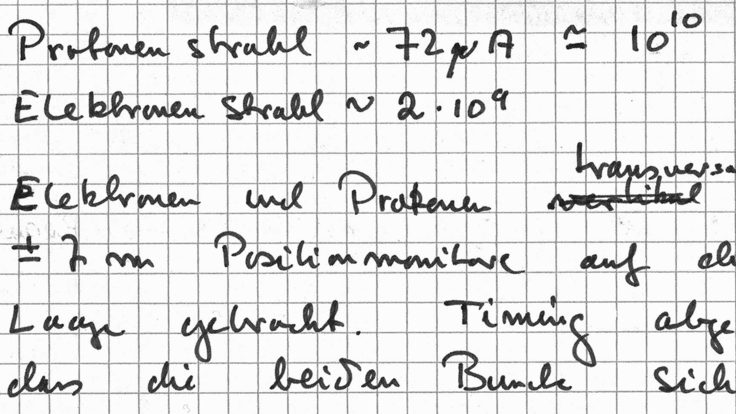 Protonen strahl ~ 72 µA ≃ 10¹⁰
Elektronen strahl ~ 2 · 10⁹
transversa
Elektronen und Protonen vertikal
± 7 mm Positionmonitore auf d
Lage gebracht. Timing abge
dass die beiden Bunch sich